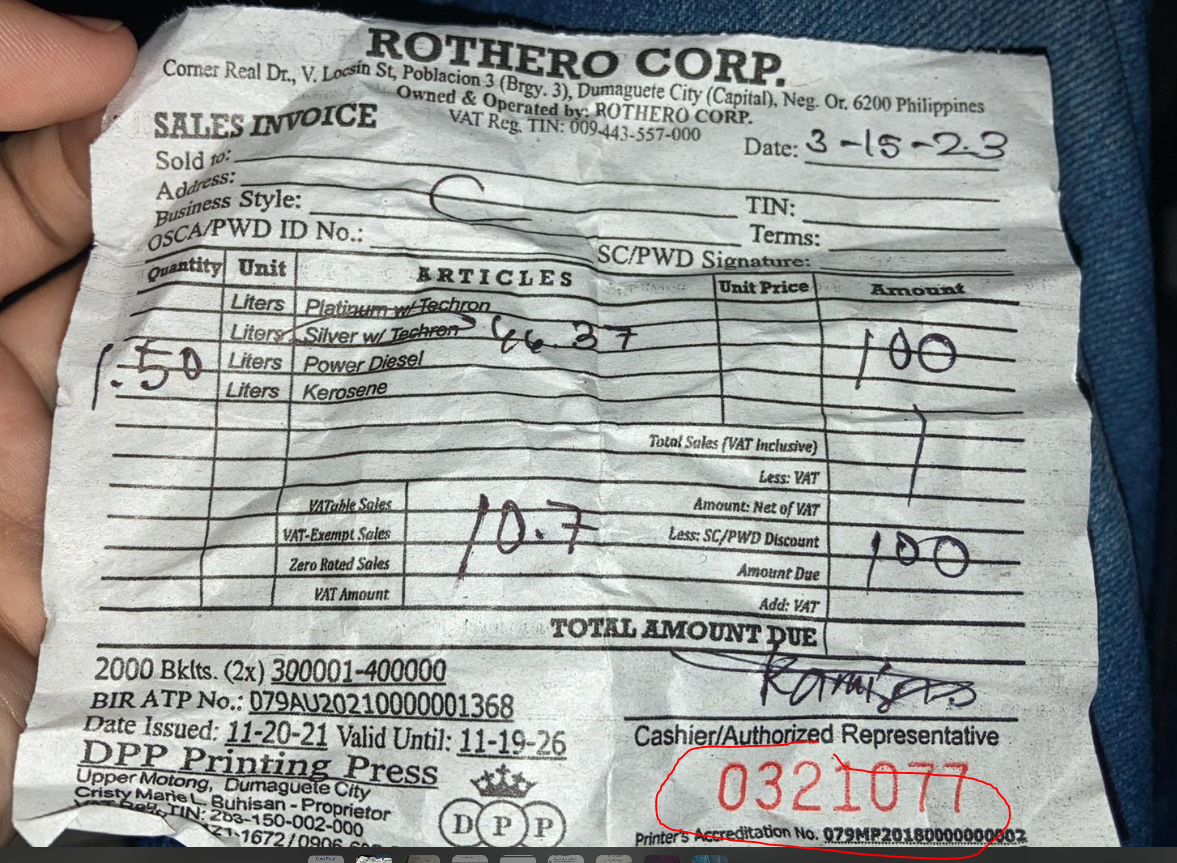 ROTHERO CORP.
Corner Real Dr., V. Locsin St, Poblacion 3 (Brgy. 3), Dumaguete City (Capital), Neg. Or. 6200 Philippines
Owned & Operated by: ROTHERO CORP.
VAT Reg. TIN: 009-443-557-000
SALES INVOICE
Date: 3-15-23
Sold to:
Address:
Business Style: C TIN:
OSCA/PWD ID No.: Terms:
SC/PWD Signature:
Quantity Unit ARTICLES Unit Price Amount
Liters Platinum w/ Techron
Liters Silver w/ Techron 66.37 100
1.50 Liters Power Diesel
Liters Kerosene
Total Sales (VAT Inclusive)
Less: VAT
VATable Sales 10.7 Amount: Net of VAT
VAT-Exempt Sales Less: SC/PWD Discount 100
Zero Rated Sales Amount Due
VAT Amount Add: VAT
TOTAL AMOUNT DUE
2000 Bklts. (2x) 300001-400000
BIR ATP No.: 079AU20210000001368
Date Issued: 11-20-21 Valid Until: 11-19-26
Cashier/Authorized Representative
DPP Printing Press
Upper Motong, Dumaguete City
Cristy Marie L. Buhisan - Proprietor
VAT Reg. TIN: 263-150-002-000
DPP
0321077
Printer's Accreditation No. 079MP20180000000002